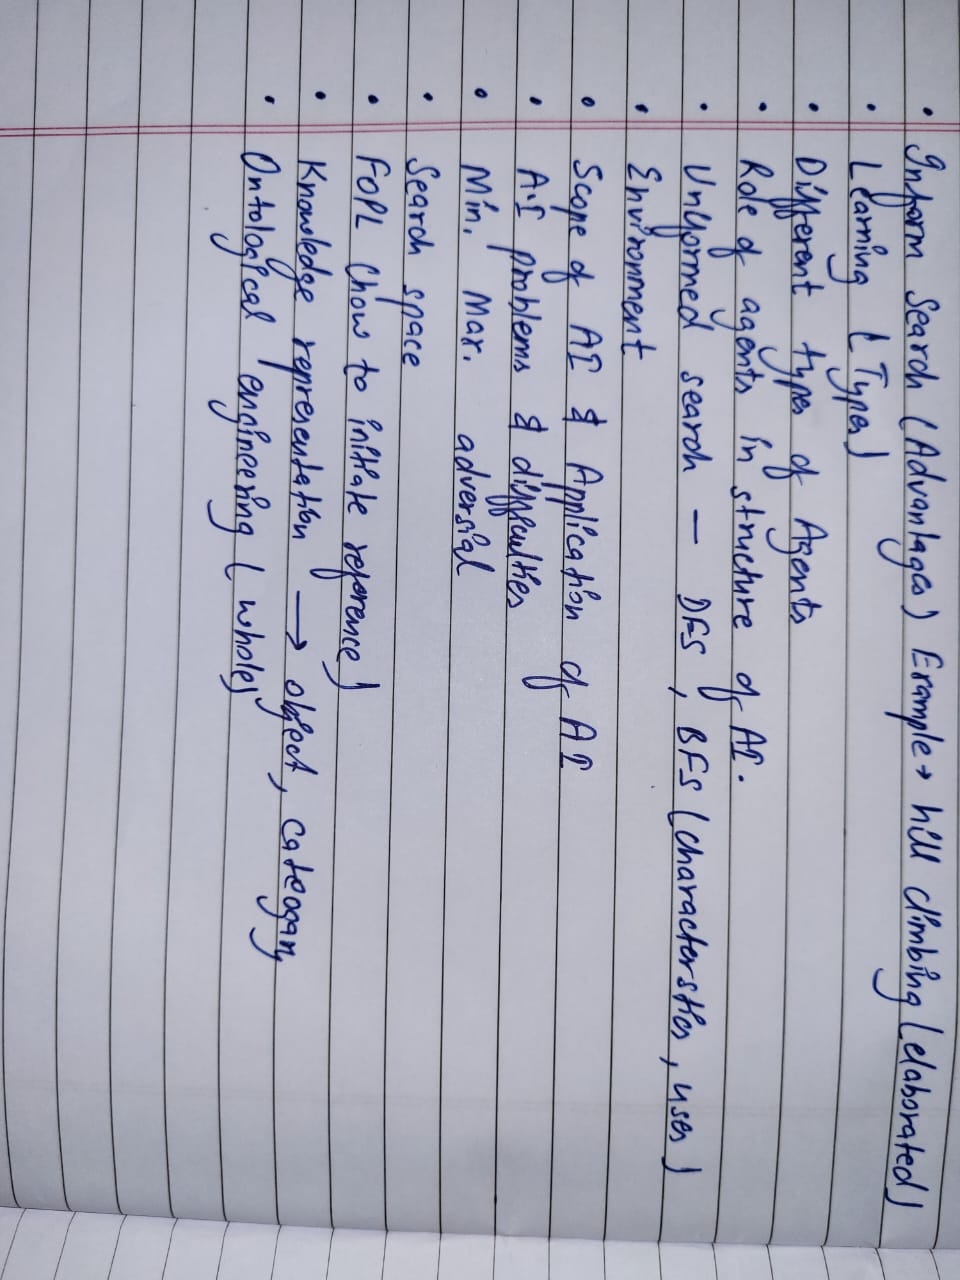 • Inform Search (Advantages) Example → hill climbing (elaborated)
• Learning (Types)
• Different types of Agents
• Role of agents in structure of AI.
• Uniformed search — DFS, BFS (characterstics, uses)
• Environment
• Scope of AI & Application of AI
• A.I problems & difficulties
• Min. Max. adversial
• Search space
• FOPL (how to initiate reference)
• Knowledge representation → object, cateogary
• Ontological engineering (whole)